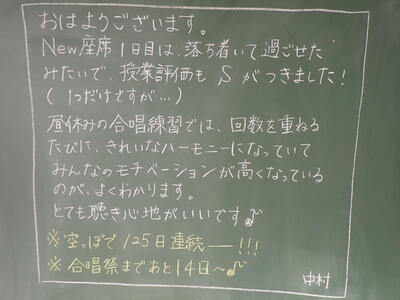 おはようございます。
New座席1日目は、落ち着いて過ごせた
みたいで、授業評価も Sがつきました!
(1つだけですが…)
昼休みの合唱練習では、回数を重ねる
たびに、きれいなハーモニーになっていて
みんなのモチベーションが高くなっている
のが、よくわかります。
とても聴き心地がいいです♪
※空っぽで125日連続――!!!
※合唱祭まであと14日〜♪
中村